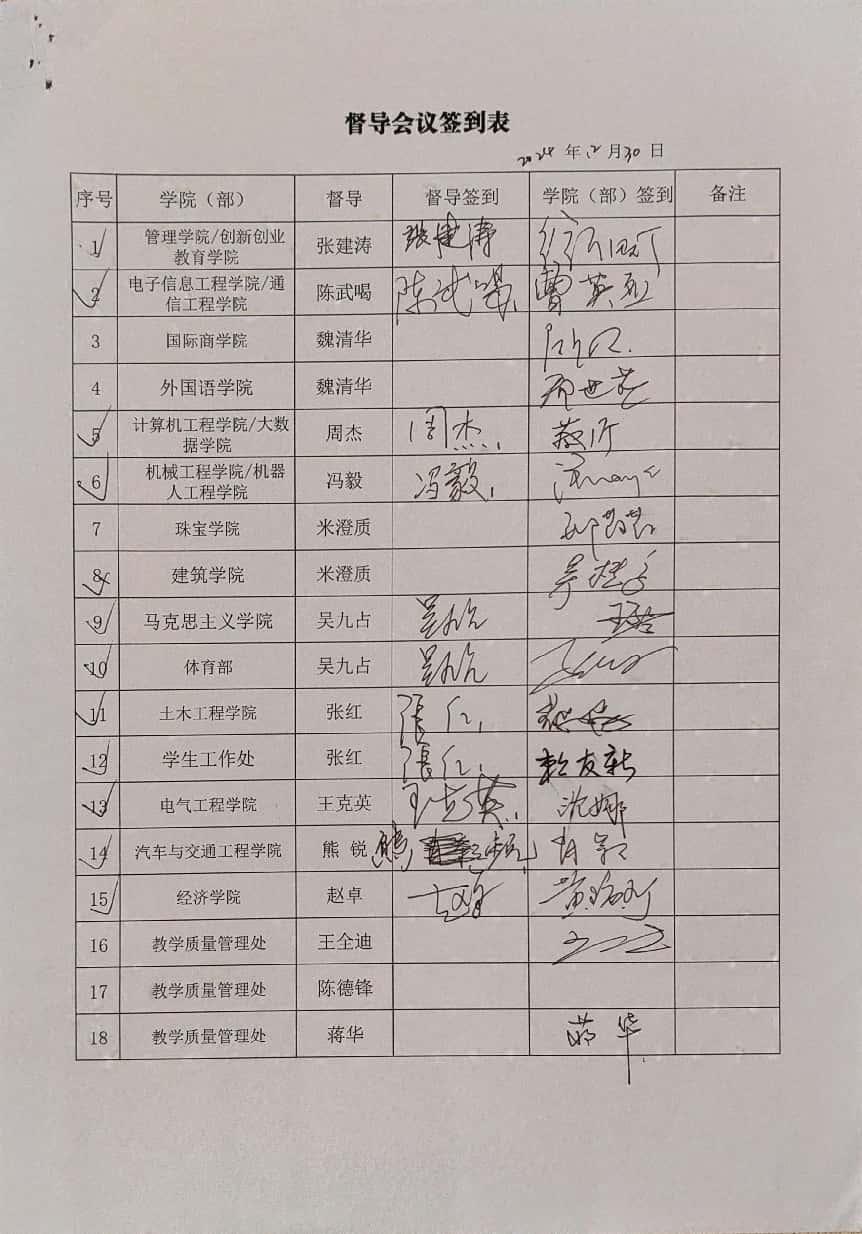 督导会议签到表
2024 年 12 月 30 日
序号 学院（部） 督导 督导签到 学院（部）签到 备注
1 管理学院/创新创业 张建涛 张建涛
教育学院
2 电子信息工程学院/通 陈武喝 陈武喝 曹英烈
信工程学院
3 国际商学院 魏清华
4 外国语学院 魏清华
5 计算机工程学院/大数 周杰 周杰
据学院
6 机械工程学院/机器 冯毅 冯毅
人工程学院
7 珠宝学院 米澄质
8 建筑学院 米澄质
9 马克思主义学院 吴九占 吴九占
10 体育部 吴九占 吴九占
11 土木工程学院 张红 張红
12 学生工作处 张红 張红
13 电气工程学院 王克英 王克英 沈娜
14 汽车与交通工程学院 熊 锐 熊锐
15 经济学院 赵卓
16 教学质量管理处 王全迪
17 教学质量管理处 陈德锋
18 教学质量管理处 蒋华 蒋华